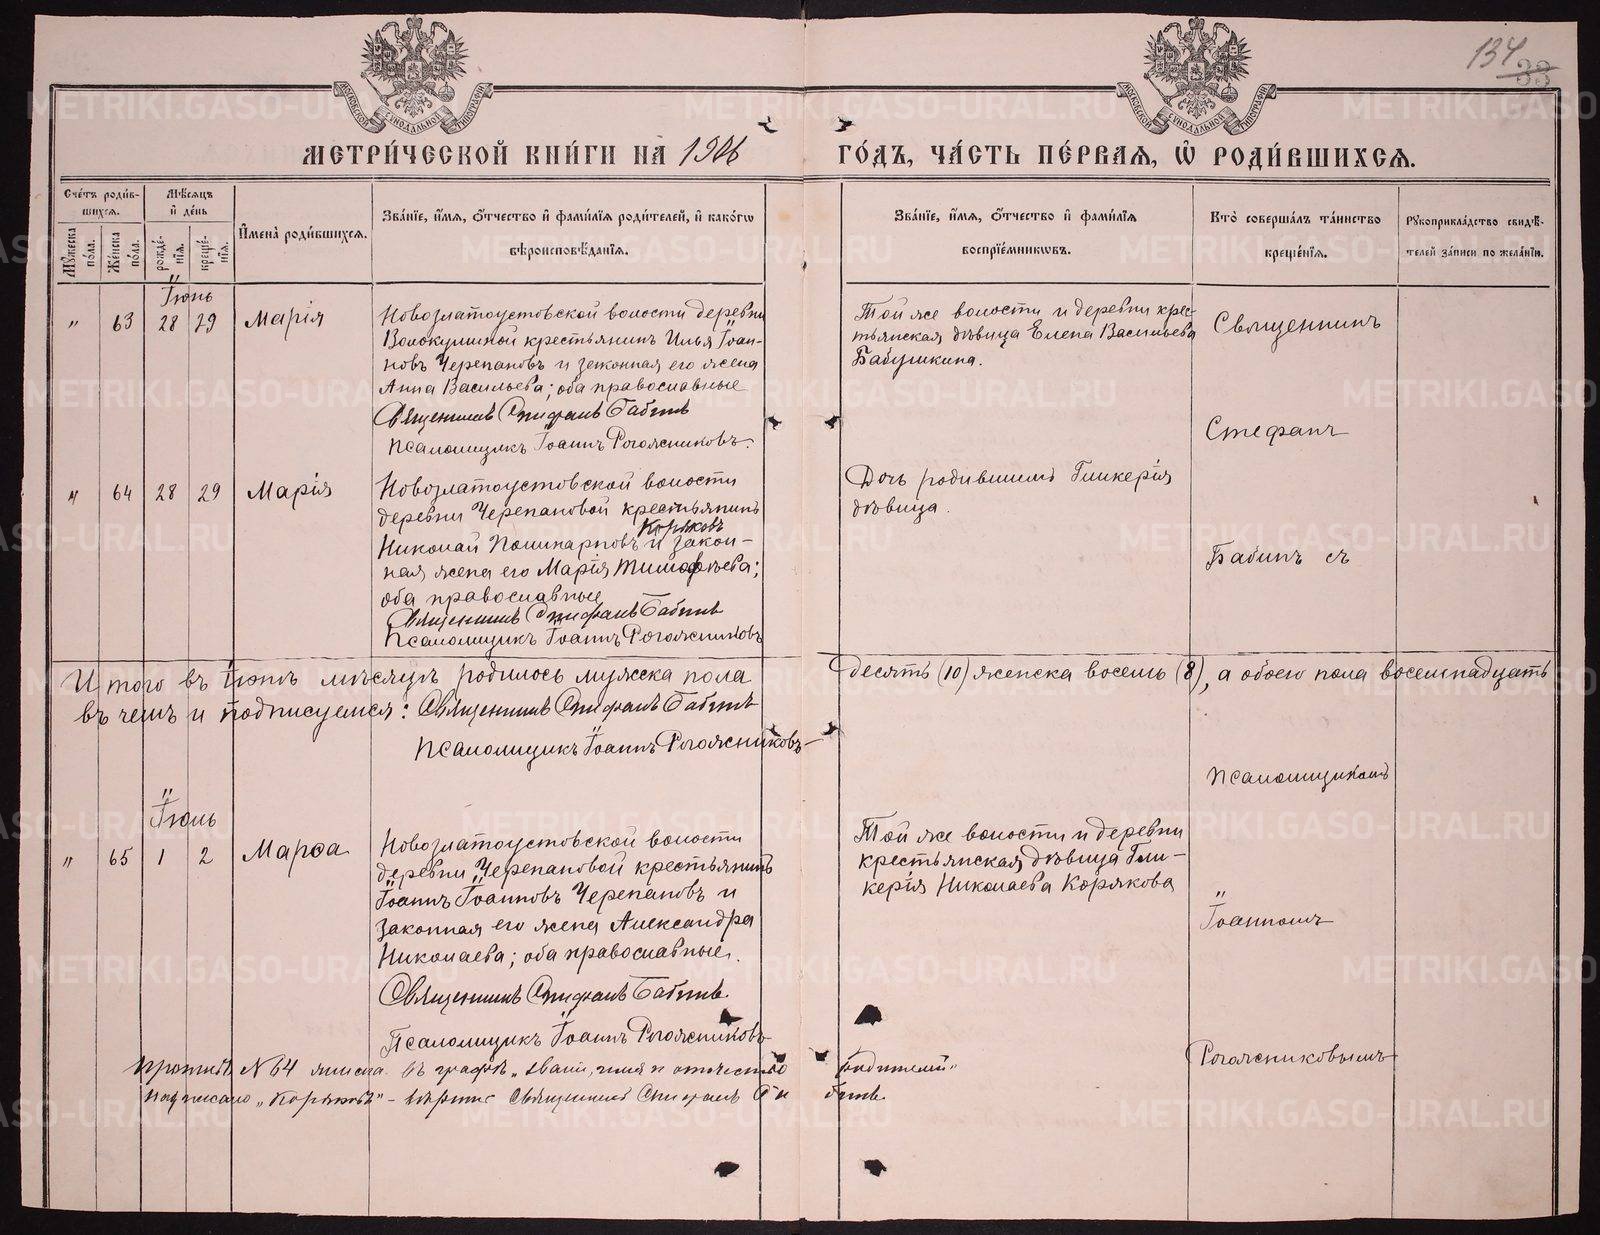 134
33
МОСКОВСКОЙ СУНОДАЛЬНОЙ ТИПОГРАФІИ
МОСКОВСКОЙ СУНОДАЛЬНОЙ ТИПОГРАФІИ
МЕТРИ́ЧЕСКОЙ КНИ́ГИ НА 1906 ГО́ДЪ, ЧА́СТЬ ПЕ́РВАЯ, Ѡ҆ РОДИ́ВШИХСѦ.
Сче́тъ роди́в-
шихсѧ.
Мꙋ́жеска по́ла.
Же́нска по́ла.
Мѣ́сѧцъ
и҆ де́нь
рожде́-
нїѧ.
креще́-
нїѧ.
И҆мена̀ роди́вшихсѧ.
Зва́нїе, и҆́мѧ, ѻ҆́тчество и҆ фами́лїѧ роди́телей, и҆ како́гѡ
вѣроисповѣ́данїѧ.
Зва́нїе, и҆́мѧ, ѻ҆́тчество и҆ фами́лїѧ
воспрїе́мникѡвъ.
Кто̀ соверша́лъ та́инство
креще́нїѧ.
Рꙋкоприкла́дство свидѣ́-
телей за́писи по жела́нїю.
Іюнь
" 63 28 29 Марія
Новозлатоустовской волости деревни
Волокушиной крестьянинъ Илья Іоан-
новъ Черепановъ и законная его жена
Анна Васильева; оба православные
Священникъ Стефанъ Бабинъ
Псаломщикъ Іоаннъ Рогожниковъ.
Той же волости и деревни крес-
тьянская дѣвица Елена Васильева
Бабушкина.
Священникъ
Стефанъ
" 64 28 29 Марія
Новозлатоустовской волости
деревни Черепановой крестьянинъ
Коряковъ
Николай Поликарповъ и закон-
ная жена его Марія Тимофѣева;
оба православные
Священникъ Стефанъ Бабинъ
Псаломщикъ Іоаннъ Рогожниковъ
Дочь родившихъ Гликерія
дѣвица.
Бабинъ съ
Итого въ Іюнѣ мѣсяцѣ родилось мужска пола десять (10) женска восемь (8), а обоего пола восемнадцать
въ чемъ и подписуемся: Священникъ Стефанъ Бабинъ
Псаломщикъ Іоаннъ Рогожниковъ
псаломщикомъ
Іюль
" 65 1 2 Марѳа
Новозлатоустовской волости
деревни Черепановой крестьянинъ
Іоаннъ Іоанновъ Черепановъ и
законная его жена Александра
Николаева; оба православные.
Священникъ Стефанъ Бабинъ.
Псаломщикъ Іоаннъ Рогожниковъ
Той же волости и деревни
крестьянская дѣвица Гли-
керія Николаева Корякова
Іоанномъ
Рогожниковымъ
противъ № 64 въ графѣ „званіе, имя и отчество родителей"
надписано „Коряковъ" - вѣрно: Священникъ Стефанъ Бабинъ.
METRIKI.GASO-URAL.RU